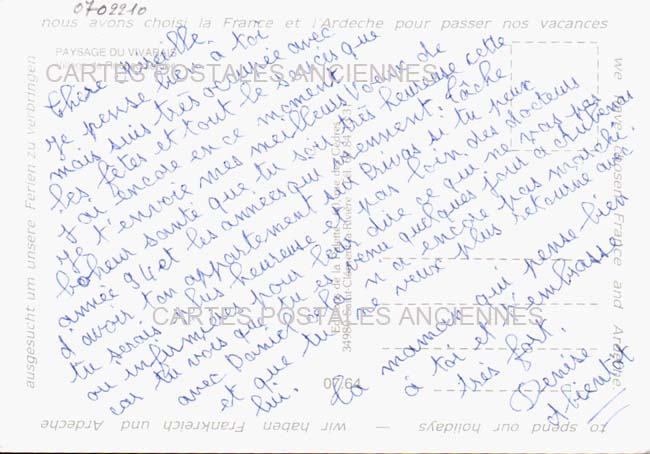 0702210
nous avons choisi la France et l'Ardeche pour passer nos vacances
PAYSAGE DU VIVARAIS
CARTES POSTALES ANCIENNES
chère
Je pense bien à toi
mais suis très occupée avec
les fêtes et tout le service que
J'ai encore en ce moment.
Je t'envoie mes meilleurs vœux de
bonheur santé que tu sois très heureuse cette
année 94 et les années qui viennent. tâche
d'avoir ton appartement sur Privas si tu peux
tu serais plus heureuse et pas loin des docteurs
ou infirmières pour leur dire ce qui ne vous pas
car tu vois que tu es venu quelques jours à
avec Daniel ça n'a encore pas marché
et que tu ne veux plus retourné avec
lui.
Ta maman qui pense bien
à toi et t'embrasse
très fort.
Denise
A bientot
CARTES POSTALES ANCIENNES
07.64
we have chosen France and Ardeche
to spend our holidays — wir haben Frankreich und Ardeche
ausgesucht um unsere Ferien zu verbringen